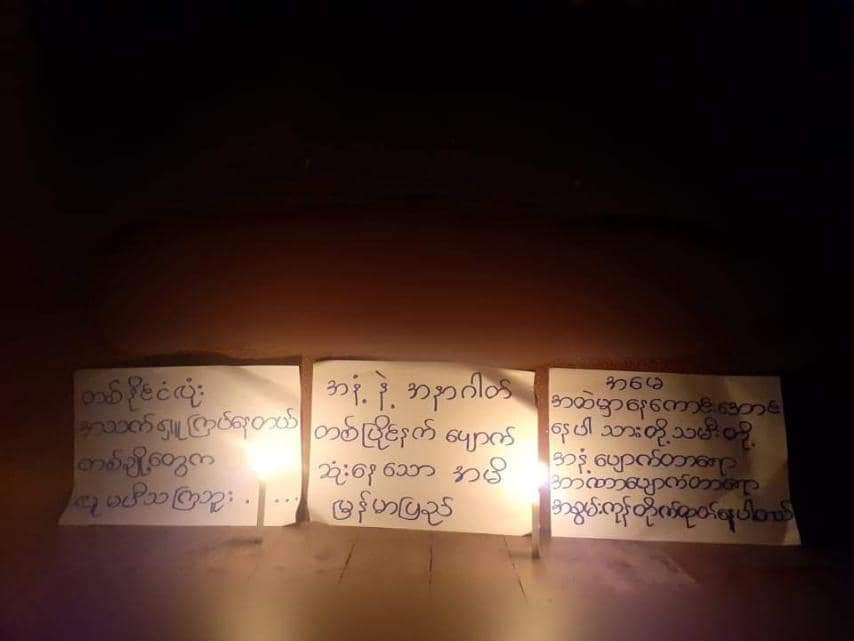 တစ်နိုင်ငံလုံး
အသက်ရှူကြပ်နေတယ်
တစ်ချို့တွေက
လူမပီသကြဘူး . ...
အနံ့ နဲ့ အနာဂါတ်
တစ်ပြိုင်နက် ပျောက်
ဆုံးနေသော အမိ
မြန်မာပြည်
အမေ
အထဲမှာနေကောင်းအောင်
နေပါ သားတို့သမီးတို့
အနံ့ပျောက်တာရော
အာဏာပျောက်တာရော
အစွမ်းကုန်တိုက်ထုတ်နေပါတယ်